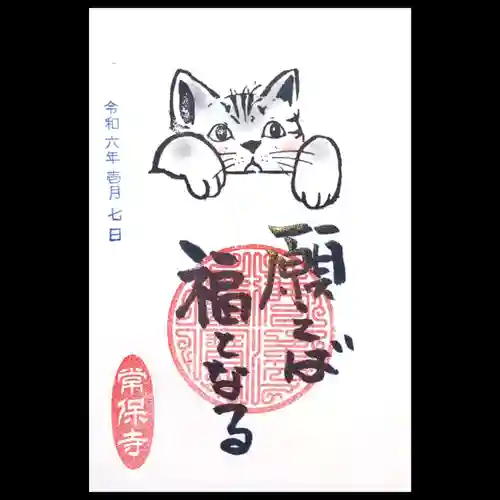 願えば
福となる
令和六年壱月七日
常保寺